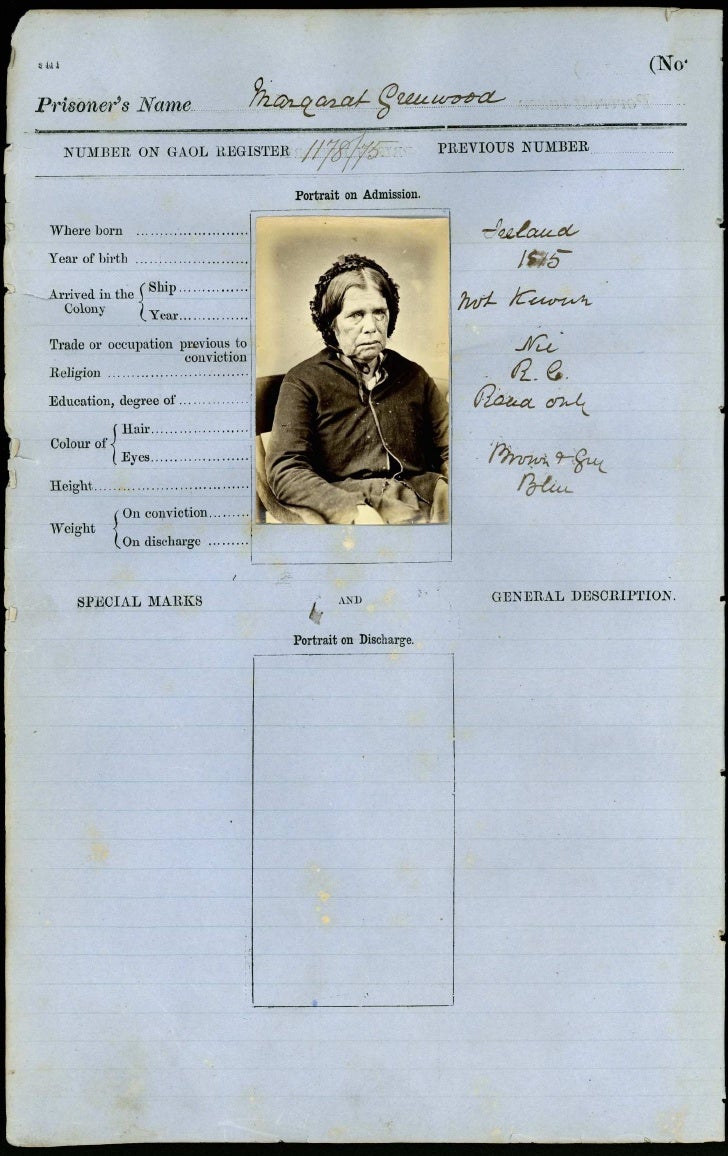 (No.
Prisoner's Name Margarat Greenwood
NUMBER ON GAOL REGISTER 1178/75 PREVIOUS NUMBER
Portrait on Admission.
Where born Ireland
Year of birth 1815
Arrived in the Colony { Ship
Year Not Known
Trade or occupation previous to conviction Nil
Religion R. C.
Education, degree of Read only
Colour of { Hair Brown & Grey
Eyes Blue
Height
Weight { On conviction
On discharge
SPECIAL MARKS AND GENERAL DESCRIPTION.
Portrait on Discharge.